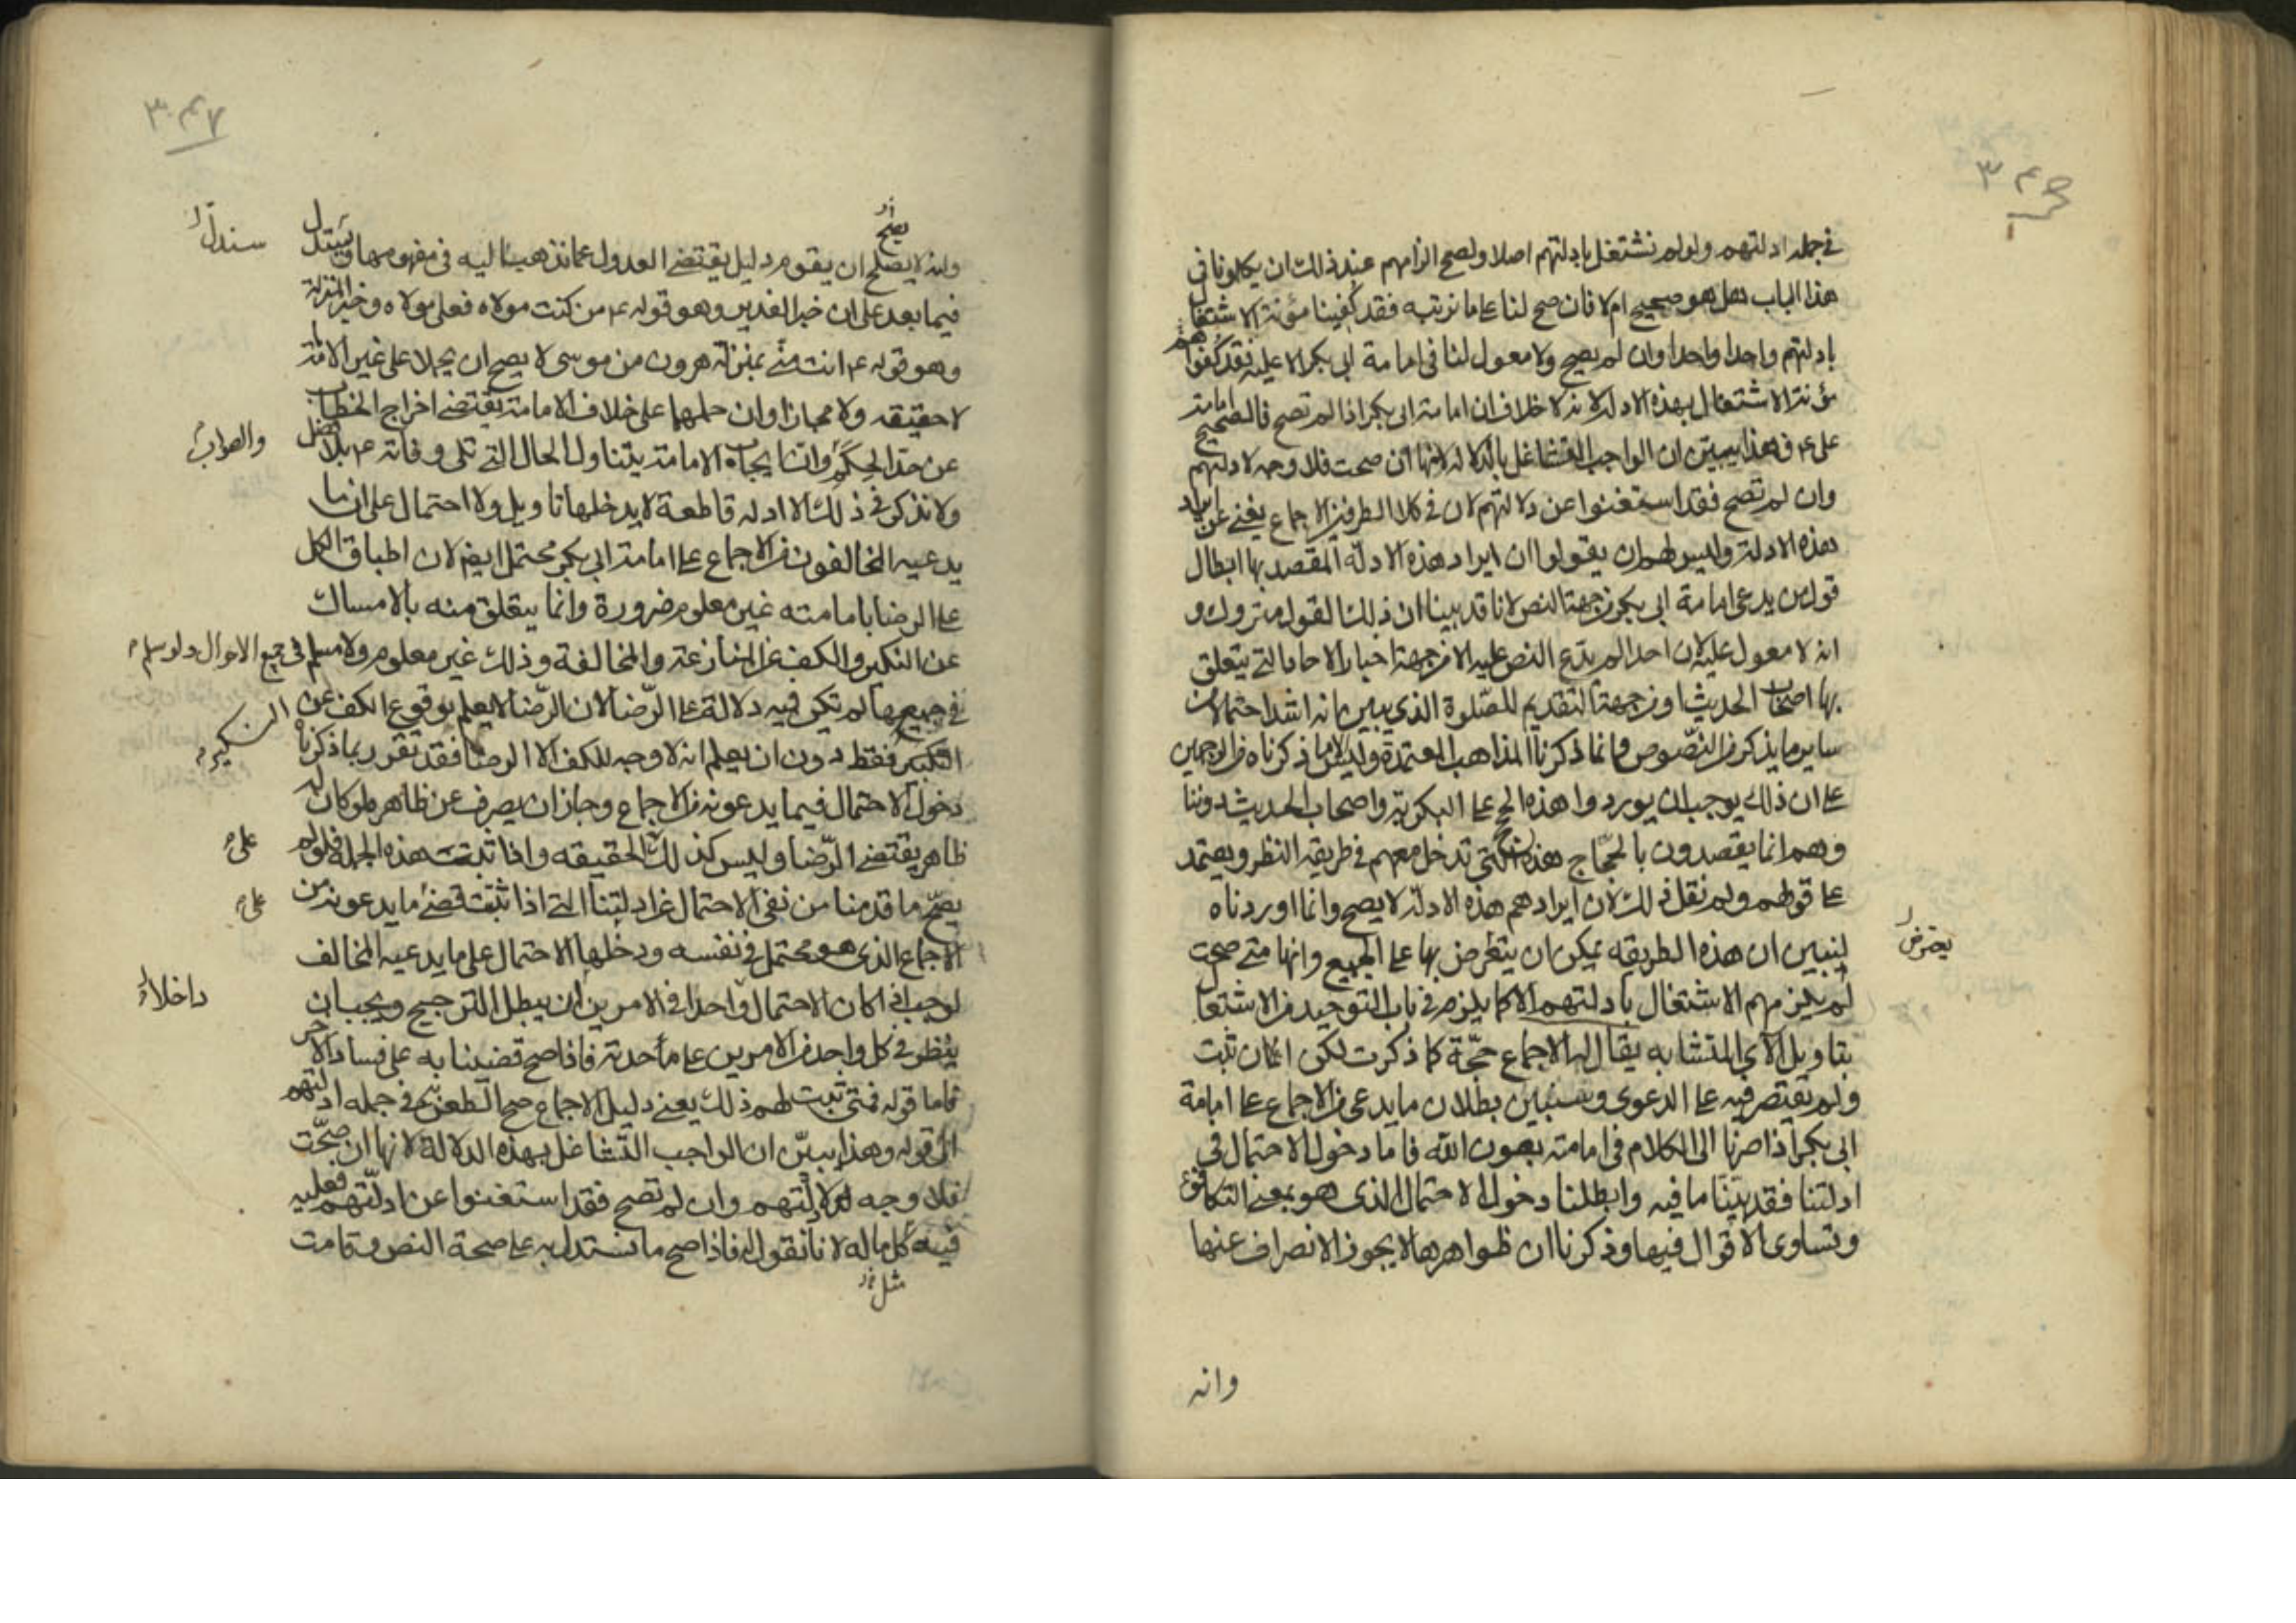 ٣٤٦
في جملة ادلتهم ولو لم نشتغل بادلتهم اصلا ولصح الزامهم عند ذلك ان يكلمونا في
هذا الباب هل هو صحيح ام لا فان صح لنا على ما نرتبه فقد كفينا مؤنة الاشتغال
بادلتهم واحدا واحدا وان لم يصح ولا معول لنا في امامة ابي بكر الا عليه فقد كفوا هم
مؤنة الاشتغال بهذه الادلة لانه لا خلاف ان امامة ابي بكر اذا لم تصح فالصحيح امامة
على ع وهذا يبين ان الواجب التشاغل بالدلالة لانها ان صحت فلا وجه لادلتهم
وان لم تصح فقد استغنوا عن دلالتهم لان في كلا الطرفين الاجماع يغنى عن ايراد
هذه الادلة وليس لهم ان يقولوا ان ايراد هذه الادلة المقصد بها ابطال
قول من يدعى امامة ابى بكر من جهة النص لانا قد بينا ان ذلك القول متروك و
انه لا معول عليه لان احدا لم يدع النص عليه الا من جهة اخبار الاحاد التي يتعلق
بها اصحاب الحديث او من جهة التقديم للصلوة الذي يبين انه اشد احتمالا من
ساير ما يذكر من النصوص وانما ذكرنا المذاهب المعتمدة وليس ما ذكرناه من الوجهين
على ان ذلك يوجب ان يوردوا هذه الحجج على البكرية واصحاب الحديث دوننا
وهم انما يقصدون بالحجاج هذه التي تدخل معهم في طريقة النظر ويعتمد
على قولهم ولم نقل ذلك لان ايرادهم هذه الادلة لا يصح وانما اوردناه
لنبين ان هذه الطريقه يمكن ان يتعرض بها على الجميع وانها متى صحت
يعترض
لم يلزمهم الاشتغال بادلتهم الا كما يلزم في باب التوحيد من الاشتغال
بتاويل الآي المتشابه يقال له الاجماع حجّة كما ذكرت لكن ان كان ثبت
ولم يقتصر فيه على الدعوى وسنبين بطلان ما يدعى من الاجماع على امامة
ابى بكر اذا صرنا الى الكلام في امامته بعون الله فاما دخول الاحتمال في
ادلتنا فقد بيّنا ما فيه وابطلنا دخول الاحتمال الذى هو بمعنى التكافؤ
وتساوى الاقوال فيها وذكرنا ان ظواهرها لا يجوز الانصراف عنها
وانه
٣٤٧
وانه لا يصلح ان يقوم دليل يقتضى العدول عما نذهب اليه في مفهومها ونستدل
يصح
سندل
فيما بعد على ان خبر الغدير وهو قوله ع من كنت مولاه فعلى مولاه وخبر المنزلة
وهو قوله ع انت منى بمنزلة هرون من موسى لا يصح ان يحملا على غير الامامة
لا حقيقه ولا مجازا وان حملهما على خلاف الامامة يقتضى اخراج الخطاب
عن حد الحكم وان ايجاب الامامة يتناول الحال التي تلى وفاته ع بلا فصل
والصواب
ولا نذكر في ذلك الا ادلة قاطعة لا يدخلها تاويل ولا احتمال على ان ما
يدعيه المخالفون من الاجماع على امامة ابى بكر محتمل ايضا لان اطباق الكل
على الرضا بامامته غير معلوم ضرورة وانما يتعلق منه بالامساك
عن النكير والكف عن المنازعة والمخالفة وذلك غير معلوم ولا مسلم في جميع الاحوال ولو سلم
في جميعها لم تكن فيه دلالة على الرّضا لان الرّضا لا يعلم بوقوع الكف عن
النكير فقط دون ان يعلم انه لا وجه للكف الا الرضا فقد تقرر بما ذكرناه
النكير
دخول الاحتمال فيما يدعونه من الاجماع وجاز ان يصرف عن ظاهره لو كان له
ظاهر يقتضى الرّضا وليس كذلك الحقيقه واذا ثبتت هذه الجملة فلو لم
على
يصح ما قدمنا من نفى الاحتمال عن ادلتنا التي اذا ثبتت قضى ما يدعونه من
على
الاجماع الذى هو محتمل في نفسه ودخلها الاحتمال على ما يدعيه المخالف
لوجب اذا كان الاحتمال واحدا في الامرين ان يبطل الترجيح ويجب ان
داخلا
ينظر في كل واحد من الامرين على ما حدته فاذا صح قضينا به على فساد الاخر
فاما قوله فمتى ثبت لهم ذلك يعنى دليل الاجماع صح الطعن به في جملة ادلتهم
الى قوله وهذا يبيّن ان الواجب التشاغل بهذه الدلالة لانها ان صحّت
فلا وجه لدلالتهم وان لم تصح فقد استغنوا عن ادلّتهم فعليه
فيه كل ما له لانا نقول له فاذا صح ما نستدل به على صحة النص وقامت
مثل